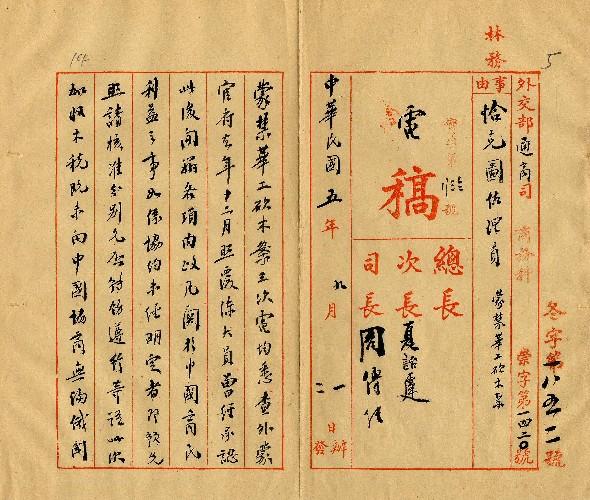 林務
5
冬字第一八五二號
外交部通商司 商務科 榮字第一四二〇號
事由 恰克圖佐理員 蒙禁華工砍木案
電稿
總長
次長 夏詒霆
司長 周傳經
中華民國五年九月 一日辦 二日發
蒙禁華工砍木案三次電均悉查外蒙
官府去年十二月照覆陳大員曾經承認
此後開辦各項內政凡關於中國商民
利益之事如係協約未經明定者須預先
照請核准分別允否轉飭遵行等語此次
加收木稅既未向中國協商無論俄國